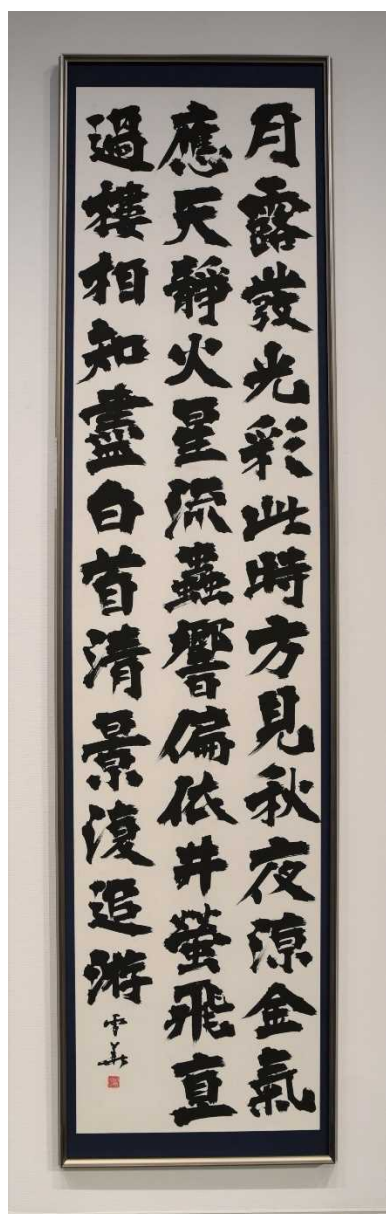 月露發光彩此時方見秋夜涼金氣
應天靜火星流蟲響偏依井螢飛直
過樓相知盡白首清景復追游